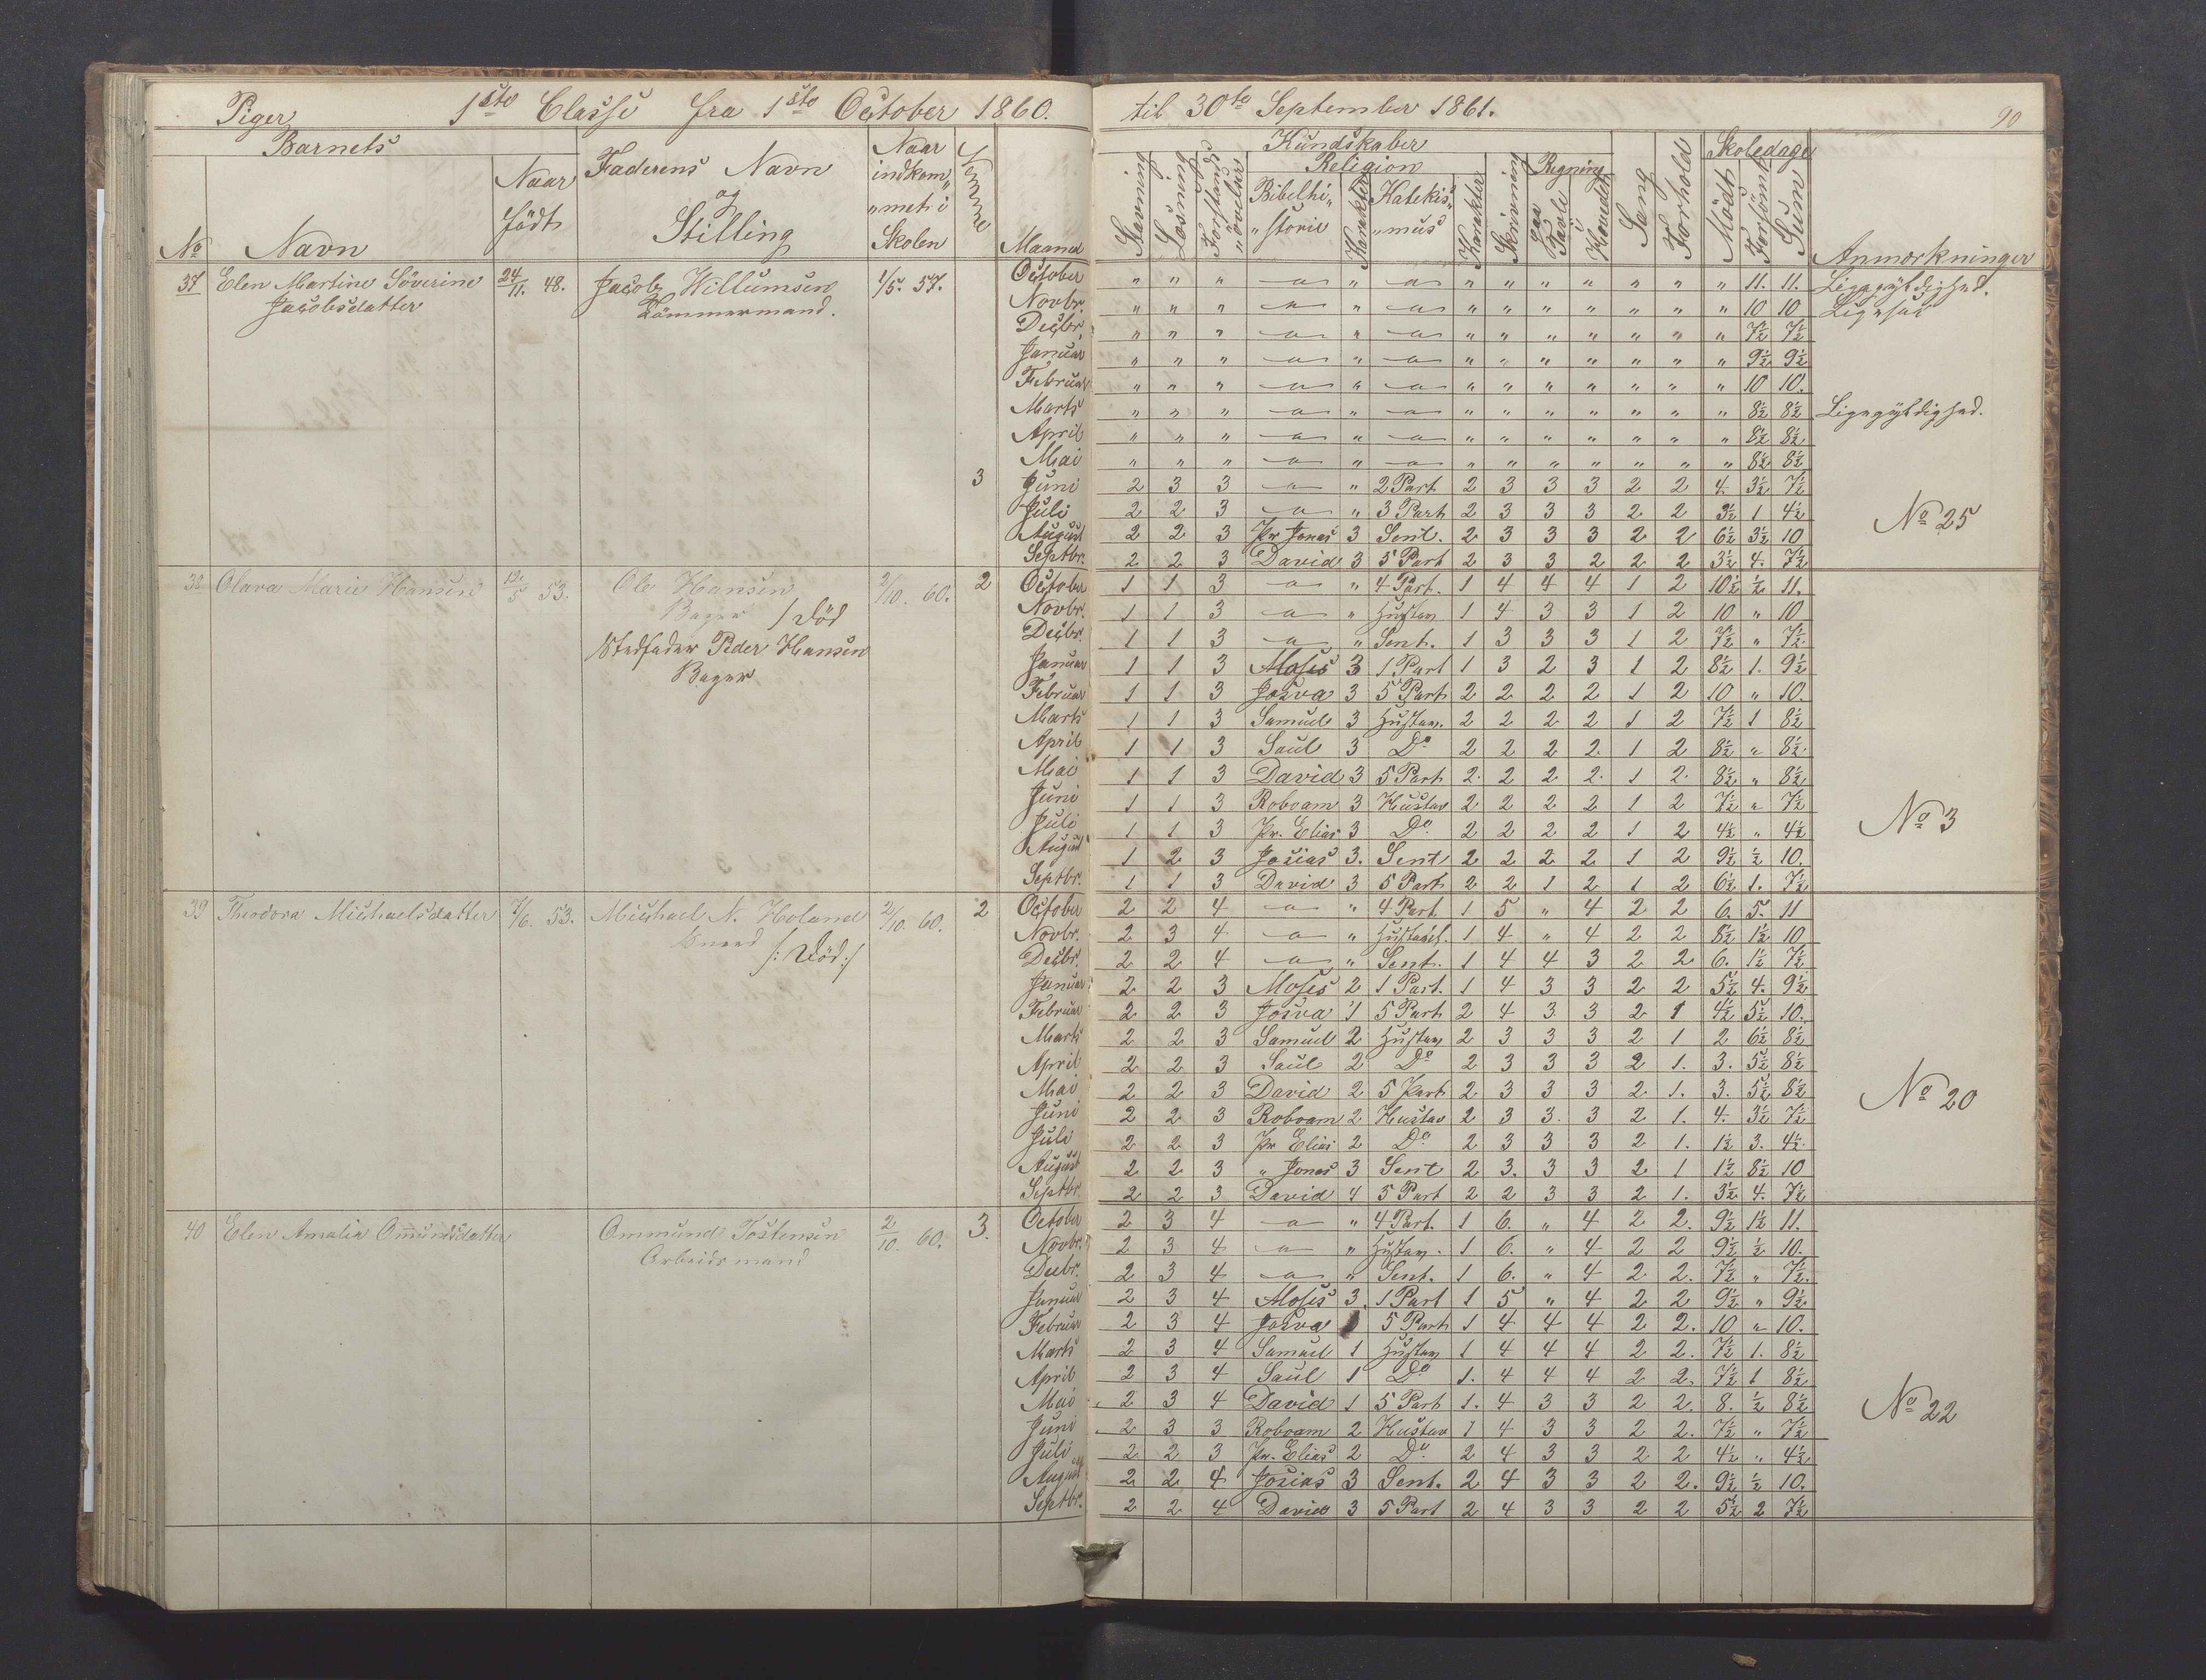 Piger 1ste Classe fra 1ste October 1860. til 30te September 1861. 90
Barnets Faderens Navn og Stilling Naar indkom„ „met i Skolen Nemme Maaned Kundskaber Skoledage Anmærkninger
No Navn Naar født Stavning Læsning Forstands„ „øvelser Religion Bibelhi„ „storie Karakter Katekis„ „mus Karakter Skrivning Regning paa Tavle i Hovedet Sang Forhold Mødt Forsømt Sum
37 Elen Martine Söverine Jacobsdatter 24/11. 48. Jacob Willumsen Tömmermand. 1/5. 57. October „ „ „ „ „ „ „ „ „ „ „ „ „ 11. 11. Ligegyldighed.
Novbr. „ „ „ „ „ „ „ „ „ „ „ „ „ 10 10
Decbr. „ „ „ „ „ „ „ „ „ „ „ „ „ 7½ 7½
Januar „ „ „ „ „ „ „ „ „ „ „ „ „ 9½ 9½
Februar „ „ „ „ „ „ „ „ „ „ „ „ „ 10 10.
Marts „ „ „ „ „ „ „ „ „ „ „ „ „ 8½ 8½ Ligegyldighed.
April „ „ „ „ „ „ „ „ „ „ „ „ „ 8½ 8½
Mai „ „ „ „ „ „ „ „ „ „ „ „ „ 8½ 8½
3 Juni 2 3 3 „ „ 2 Part 2 3 3 3 2 2 4 3½ 7½
Juli 2 2 3 „ „ 3 Part 2 3 3 3 2 2 3½ 1 4½ No 25
August 2 2 3 Pr Jonas 3 Sent. 2 3 3 3 2 2 6½ 3½ 10
Septbr. 2 2 3 David 3 5 Part 2 3 3 2 2 2 3½ 4. 7½
38 Olava Marie Hansen 12/5 53. Ole Hansen Bager / Död Stedfader Peder Hansen Bager 2/10. 60. 2 October 1 1 3 „ „ 4 Part. 1 4 4 4 1 2 10½ ½ 11.
Novbr. 1 1 3 „ „ Hustav 1 4 3 3 1 2 10 „ 10
Decbr. 1 1 3 „ „ Sent. 1 3 3 3 1 2 7½ „ 7½
Januar 1 1 3 Moses 3 1 Part 1 3 2 3 1 2 8½ 1. 9½
Februar 1 1 3 Josva 3 5 Part 2 2 2 2 1 2 10 „ 10.
Marts 1 1 3 Samuel 3 Hustav. 2 2 2 2 1 2 7½ 1 8½
April 1 1 3 Saul 3 Do 2 2 2 2. 1 2 8½ „ 8½
Mai 1 1 3 David 3 5 Part 2. 2 2 2. 1 2. 8½ „ 8½
Juni 1 1 3 Roboam 3 Hustav 2 2 2 2 1 2 7½ „ 7½
Juli 1 1 3 Pr. Elias 3 Do 2 2 2 2 1 2 4½ „ 4½ No 3
August 1 2 3 Josias 3. Sent 2 2 2 2 1 2 9½ ½ 10.
Septbr. 1 1 3 David 3 5 Part 2 2 1 2 1 2 6½ 1. 7½
39 Theodora Michaelsdatter 7/6. 53. Michael N. Holand /: Död :/ 2/10 60. 2 October 2 2 4 „ „ 4 Part. 1 5 „ 4 2 2 6. 5. 11
Novbr. 2 3 4 „ „ 1 4 „ 4 2 2 8½ 1½ 10
Decbr. 2 2 4 „ „ Sent. 1 4 4 3 2 2 6. 1½ 7½
Januar 2 2 3 Moses 2 1 Part. 1 4 3 3 2 2 5½ 4. 9½
Februar 2 2 3 Josva 1 5 Part 2 4 3 3 2 1 4½ 5½ 10.
Marts 2 2 3 Samuel 2 Hustav 2 3 3 3 2 1 2 6½ 8½
April 2 2 3 Saul 2 Do 2 3 3 3 2 1. 3. 5½ 8½
Mai 2 2 3 David 2 5 Part 2 3 3 3 2. 1. 3. 5½ 8½
Juni 2 2 3 Roboam 2 Hustav 2 3 3. 3 2 1. 4. 3½ 7½ No 20
Juli 2 2 3 Pr Elias 2 Do 2 3 3 3 2 1. 1½ 3. 4½
August 2 2 3 „ Jonas 3 Sent 2 3. 3 3 2 1 1½ 8½ 10
Septbr. 2 2 3 David 4 5 Part 2 2 3 3 2 1. 3½ 4. 7½
40 Elen Amalia Om̄undsdatter Ommund Tostensen Arbeidsmand 2/10. 60. 3. October 2 3 4 „ „ 4 Part. 1 6. „ 4 2 2. 9½ 1½ 11.
Novbr. 2 3 4 „ „ Hustav. 1 6. „ 4 2 2 9½ ½ 10.
Decbr. 2 3 4 „ „ Sent. 1 6. „ 4 2 2. 7½ „ 7½.
Januar 2 3 4 Moses 3. 1 Part 1 5 „ 4 2 2 9½ „ 9½
Februar 2 3 4 Josva 5 Part 1 4 4 4 2 2. 10 „ 10.
Marts 2 3 4 Samuel 1 Hustav 1 4 4 4 2 2. 7½ 1. 8½
April 2 3 4 Saul 1 Do 1. 4 4 4 2 2. 7½ 1 8½
Mai 2 3 4 David 1 5 Part 1. 4 3 3 2 2. 8. ½ 8½
Juni 2 3 3 Roboam 2 Hustav 1 4 3 3 2 2. 7½ „ 7½ No 22
Juli 2 2 3 Pr. Elias 2 Do 2 4 3 3 2 2 4½ „ 4½
August 2 2 4 Josias 3 Sent. 2 4 3 3 2 2. 9½ ½ 10.
Septbr. 2 2 4 David 3 5 Part 2 4 3 3 2 2 5½ 2 7½